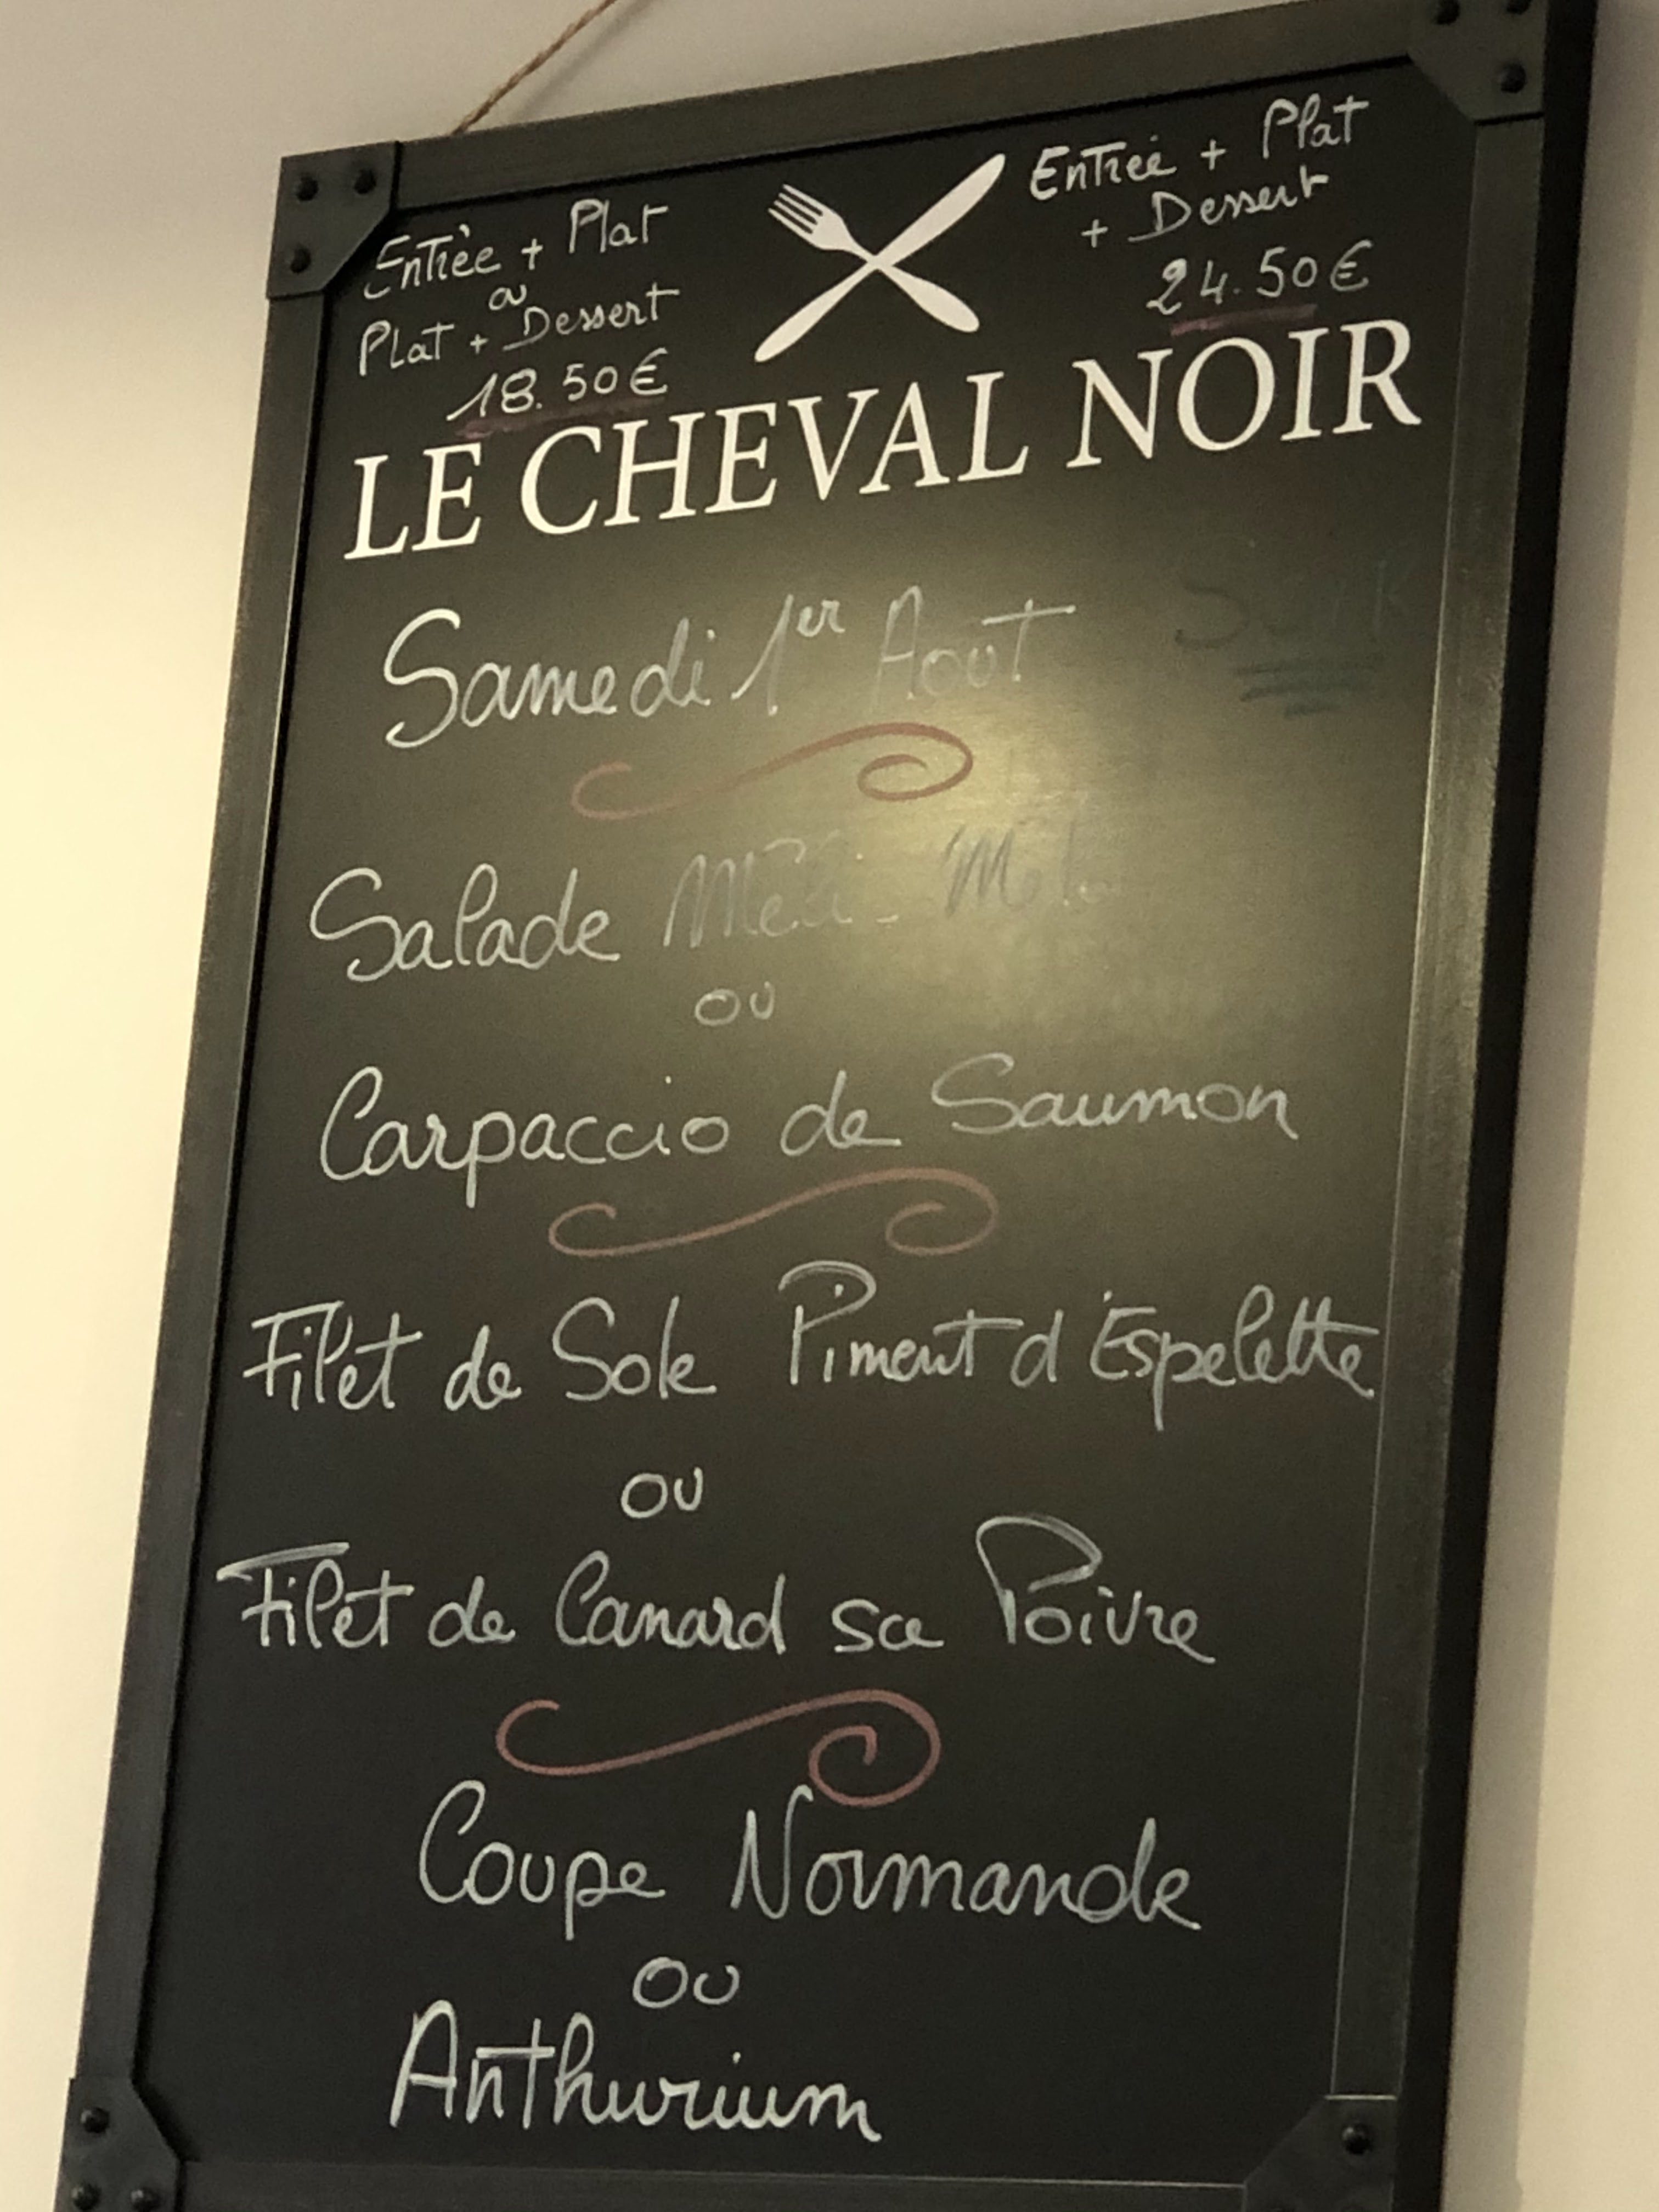 Entrée + Plat
ou
Plat + Dessert
18.50€
Entrée + Plat
+ Dessert
24.50€
LE CHEVAL NOIR
Samedi 1er Aout
Salade
ou
Carpaccio de Saumon
Filet de Sole Piment d'Espelette
ou
Filet de Canard sce Poivre
Coupe Normande
ou
Anthurium